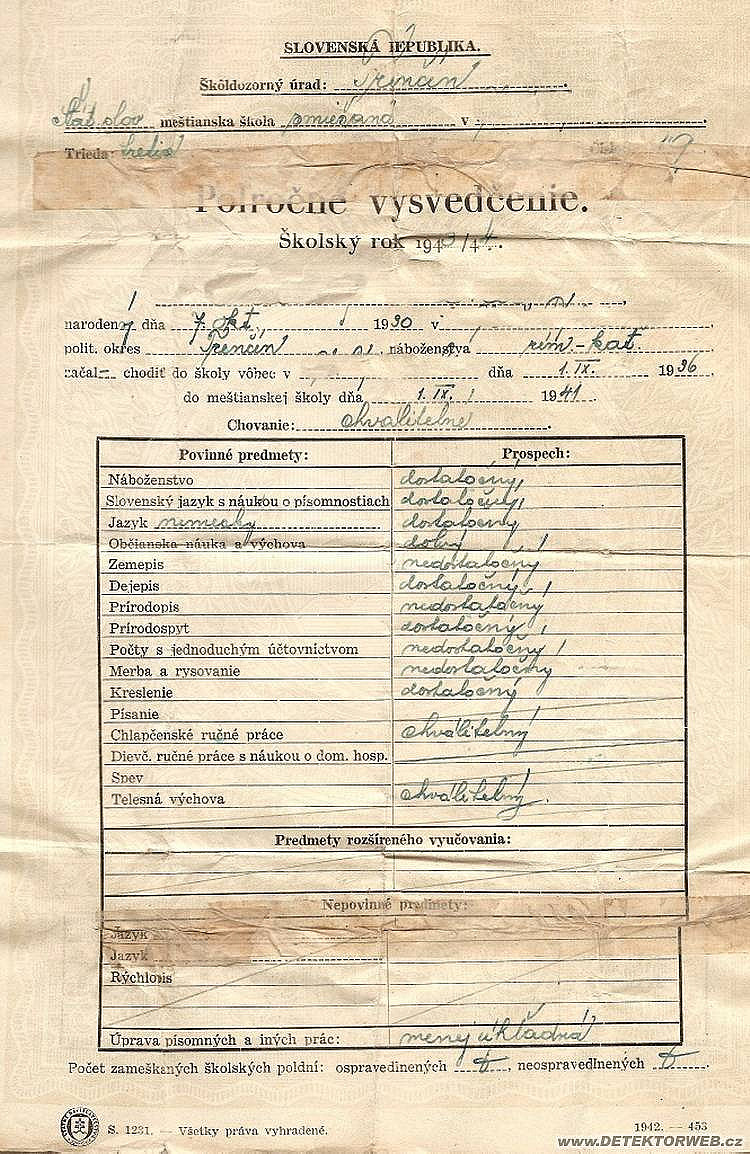 SLOVENSKÁ REPUBLIKA.
Školdozorný úrad: Trenčín
Štát. slov. meštianska škola smiešaná v
Trieda: tretia
Polročné vysvedčenie.
Školský rok 1943/44.
narodený dňa 7. okt. 1930 v
polit. okres Trenčín, náboženstva rím.-kat.
začal– chodiť do školy vôbec v dňa 1. IX. 1936
do meštianskej školy dňa 1. IX. 1941.
Chovanie: chvalitebné
Povinné predmety: Prospech:
Náboženstvo dostatočný
Slovenský jazyk s náukou o písomnostiach dostatočný
Jazyk nemecký dostatočný
Občianska náuka a výchova dobrý
Zemepis nedostatočný
Dejepis dostatočný
Prírodopis nedostatočný
Prírodospyt dostatočný
Počty s jednoduchým účtovníctvom nedostatočný
Merba a rysovanie nedostatočný
Kreslenie dostatočný
Písanie
Chlapčenské ručné práce chválitebný
Dievč. ručné práce s náukou o dom. hosp.
Spev
Telesná výchova chválitebný
Predmety rozšíreného vyučovania:
Nepovinné predmety:
Jazyk
Jazyk
Rýchlopis
Úprava písomných a iných prác: menej úhľadná
Počet zameškaných školských poldní: ospravedlnených, neospravedlnených
Š. 1231. — Všetky práva vyhradené. 1942. — 453
www.DETEKTORWEB.cz